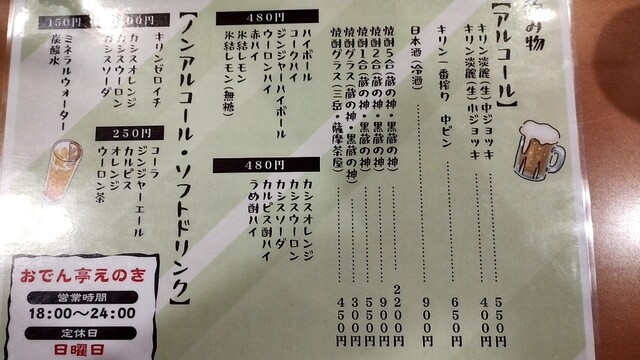 み物
【アルコール】
キリン淡麗(生)中ジョッキ 550円
キリン淡麗(生)小ジョッキ 400円
キリン一番搾り 中ビン 650円
日本酒(冷酒) 900円
焼酎5合(蔵の神・黒蔵の神) 2200円
焼酎2合(蔵の神・黒蔵の神) 900円
焼酎1合(蔵の神・黒蔵の神) 550円
焼酎グラス(蔵の神・黒蔵の神) 300円
焼酎グラス(三岳・薩摩茶屋) 450円
480円
ハイボール
コークハイ
ジンジャーハイボール
ウーロンハイ
赤ハイ
氷結レモン
氷結レモン(無糖)
480円
カシスオレンジ
カシスウーロン
カシスソーダ
カルピス酎ハイ
うめ酎ハイ
【ノンアルコール・ソフトドリンク】
00円
キリンゼロイチ
カシスオレンジ
カシスウーロン
カシスソーダ
150円
ミネラルウォーター
炭酸水
250円
コーラ
ジンジャーエール
カルピス
オレンジ
ウーロン茶
おでん亭えのき
営業時間
18:00〜24:00
定休日
日曜日